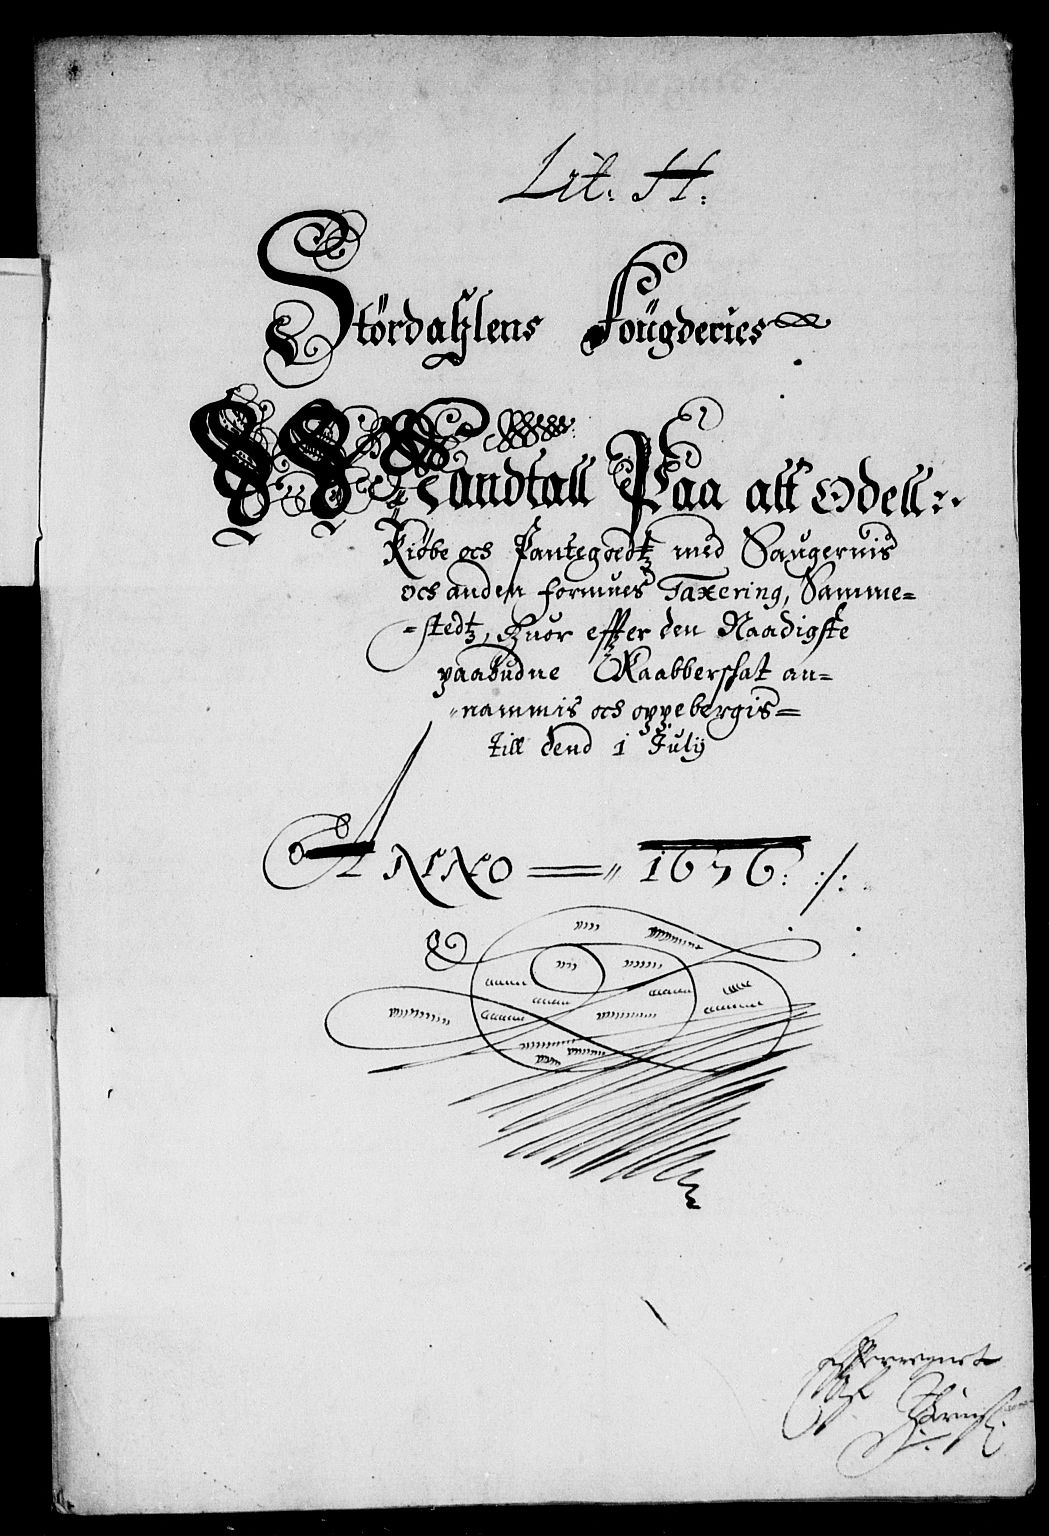 Lit: H:
Stördahlens Foügderies
Mandtall Paa alt Odell:
Kiöbe och Pantegoedtz med Saugernis
och anden formues Taxering, Samme=
=stedtz, Huor effter den Naadigste
paabudne Kaabberschat an=
nammis och oppebergis=
till dend 1 July
ANNO = 1676: ./.
Effterregnet